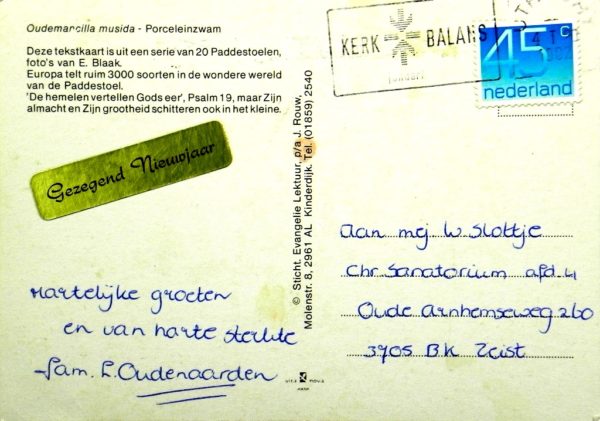 Oudemarcilla musida - Porceleinzwam
Deze tekstkaart is uit een serie van 20 Paddestoelen,
foto's van E. Blaak.
Europa telt ruim 3000 soorten in de wondere wereld
van de Paddestoel.
'De hemelen vertellen Gods eer', Psalm 19, maar Zijn
almacht en Zijn grootheid schitteren ook in het kleine.
Gezegend Nieuwjaar
Hartelijke groeten
en van harte sterkte
Fam. L. Oudenaarden
© Sticht. Evangelie Lektuur, p/a J. Rouw,
Molenstr. 8, 2961 AL Kinderdijk. Tel. (01859) 2540
vita nova
KERK BALANS
45c
nederland
Aan mej W Slottje
Chr Sanatorium afd. 4
Oude Arnhemseweg 260
3705 BK Zeist